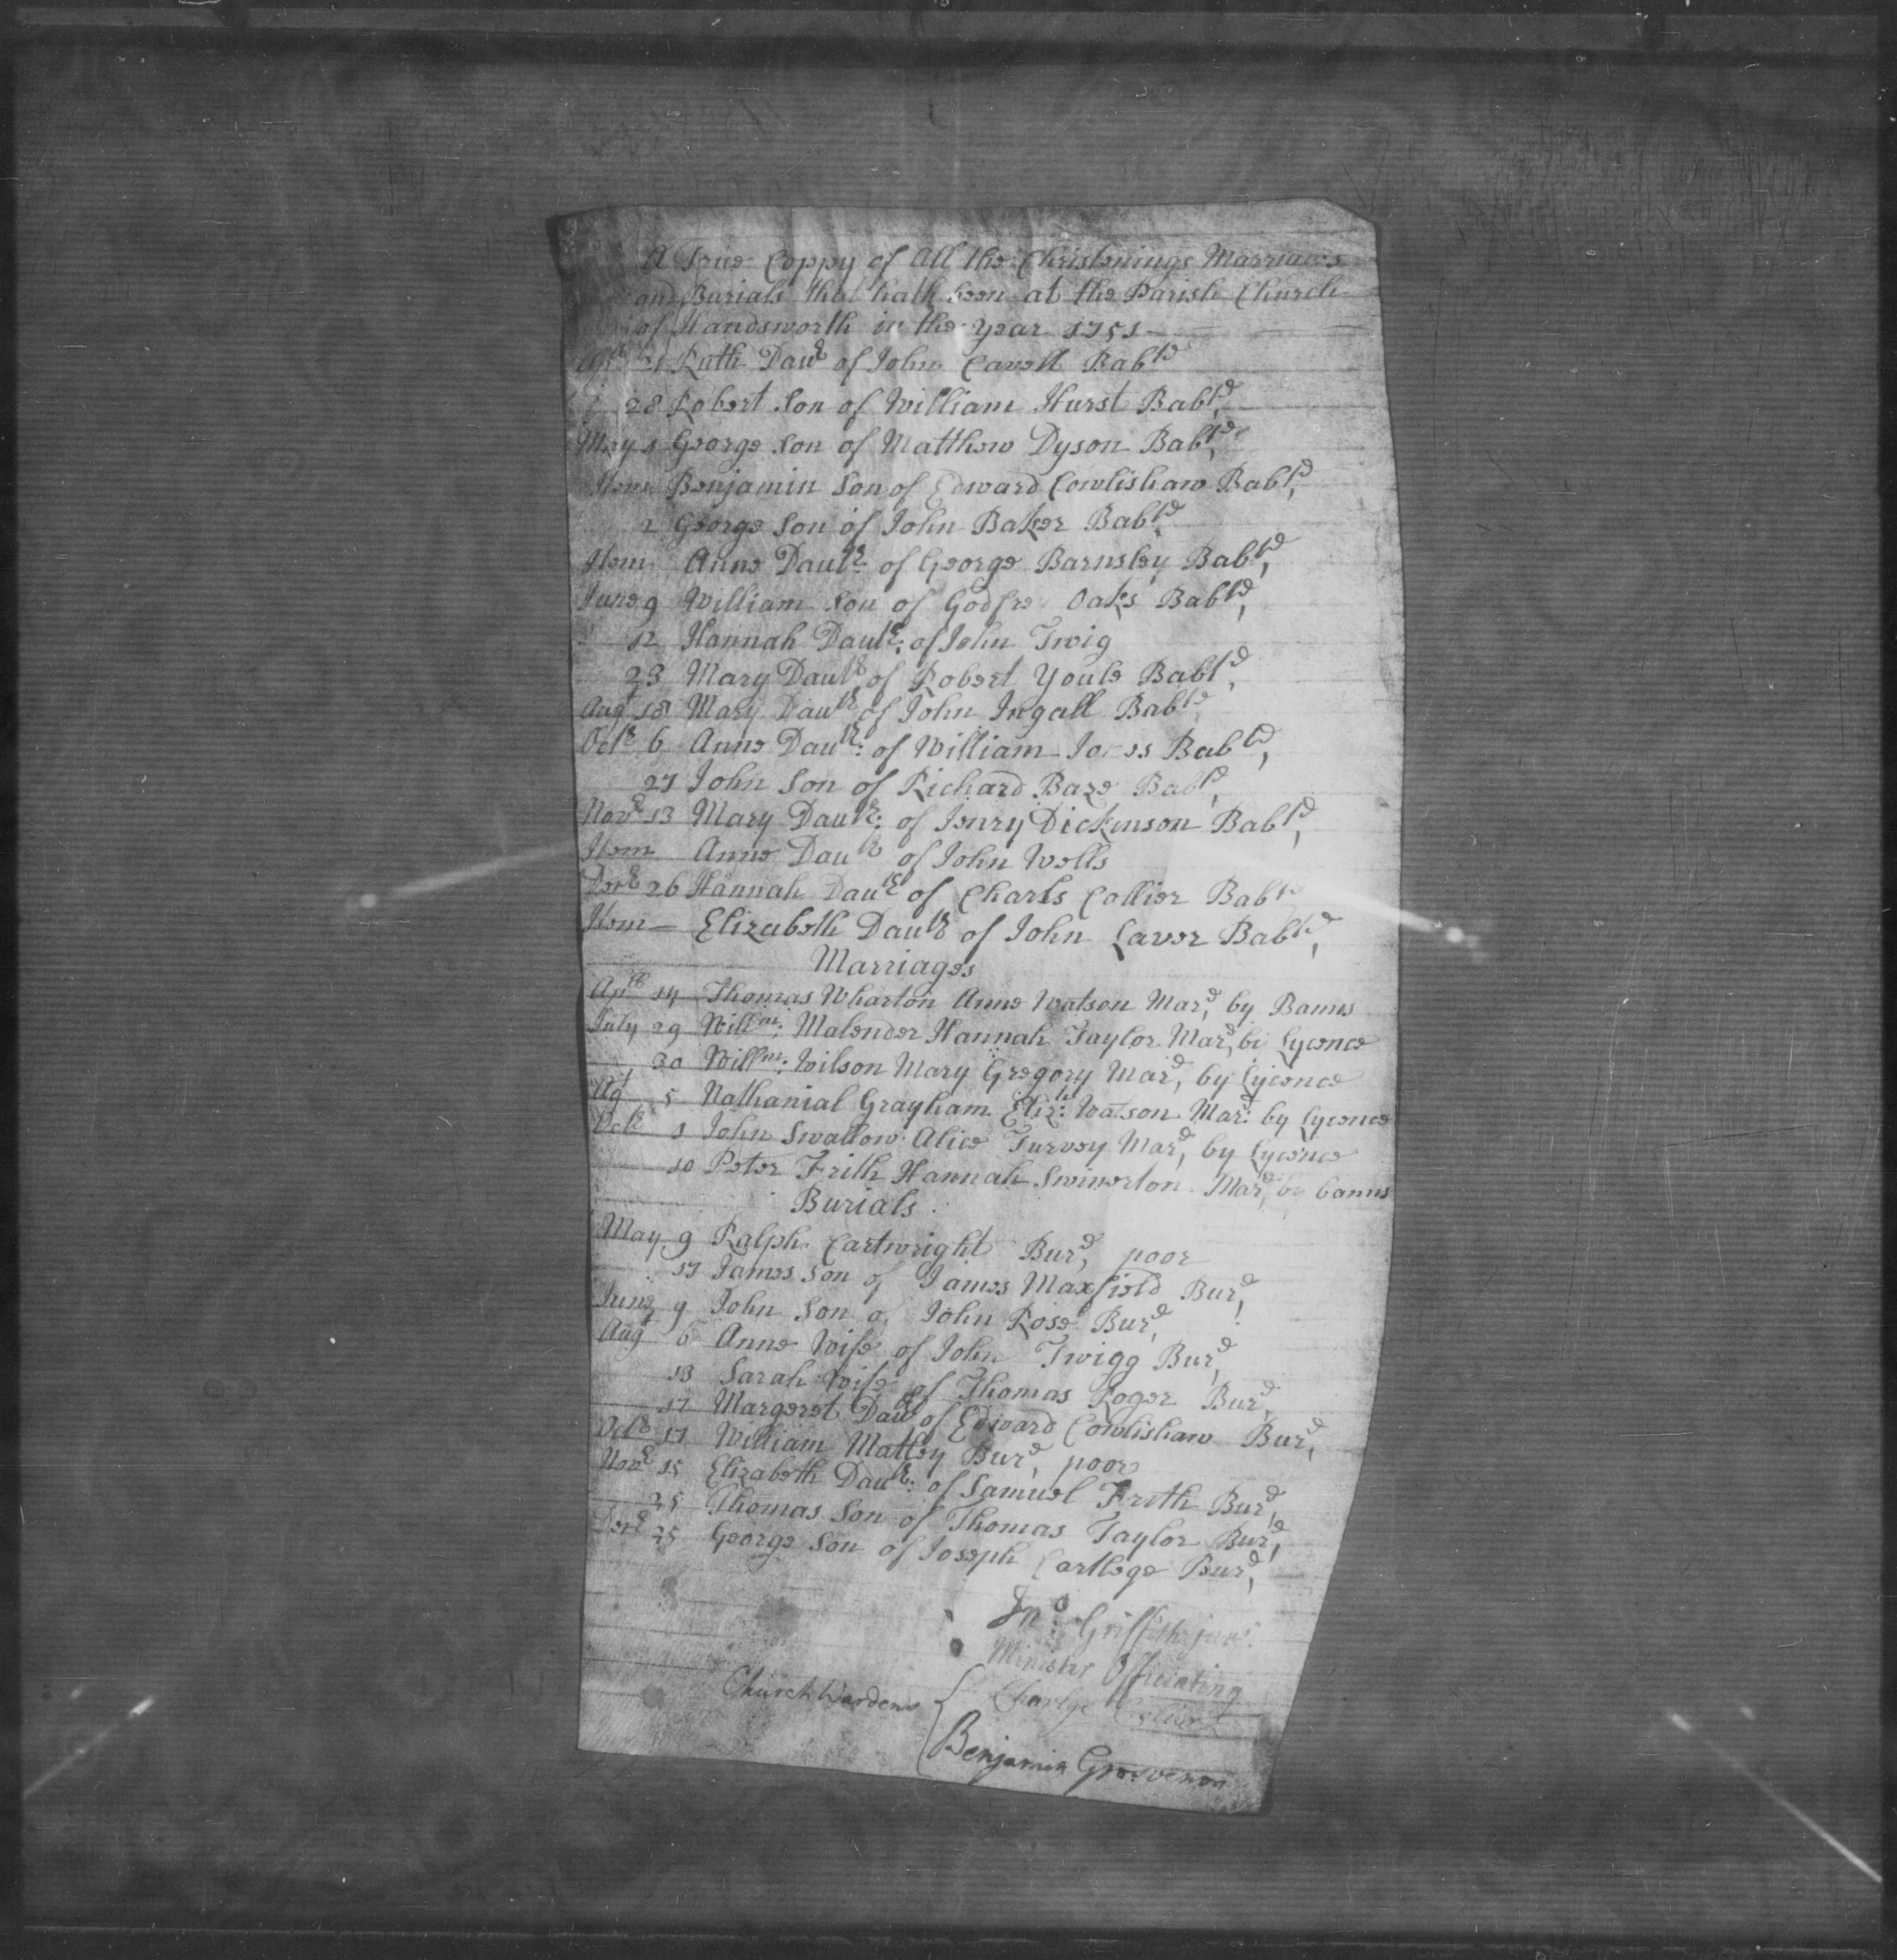 A True Coppy of All the Christenings Marriages
and Burials that hath been at the Parish Church
of Handsworth in the year 1751
Apll 21 Ruth Daur of John Cavell Babtd
28 Robert Son of William Hurst Babtd,
May 1 George Son of Matthew Dyson Babtd,
Item Benjamin Son of Edward Cowlishaw Babtd,
2 George Son of John Baker Babtd
Item Anne Dautr of George Barnsley Babtd,
June 9 William Son of Godfrey Oaks Babtd,
12 Hannah Dautr: of John Twig
23 Mary Dautr of Robert Youle Babtd,
Augt 18 Mary Dautr of John Ingall Babtd
Octr 6 Anne Dautr: of William Jones Babtd,
27 John Son of Richard Baze Babtd,
Novr 13 Mary Dautr: of Henry Dickinson Babtd,
Item Anne Dautr of John Wells
Decr 26 Hannah Dautr of Charls Collier Babtd
Item Elizabeth Dautr of John Laver Babtd,
Marriages
Apll 14 Thomas Wharton Anne Watson Mard, by Banns
July 29 Willm: Malender Hannah Taylor Mard, by Lycence
30 Willm: Wilson Mary Gregory Mard, by Lycence
Agt 5 Nathanial Grayham Elizth: Watson Mard: by Lycence
Octr 1 John Swallow Alice Turvey Mard, by Lycence
10 Peter Frith Hannah Swinerton Mard, by banns
Burials
May 9 Ralph Cartwright Burd, poor
17 James Son of James Maxfield Burd,
June 9 John Son of John Rose Burd,
Augt 6 Anne Wife of John Twigg Burd,
13 Sarah Wife of Thomas Roger Burd,
17 Margeret Daur of Edward Cowlishaw Burd,
Octr 17 William Matley Burd, poor
Novr 15 Elizabeth Dautr: of Samuel Frith Burd,
25 Thomas Son of Thomas Taylor Burd,
Decr 25 George Son of Joseph Cartlege Burd,
Jno: Griffith junr.
Minister Officiating
Church Wardens
Benjamin Grosvenor